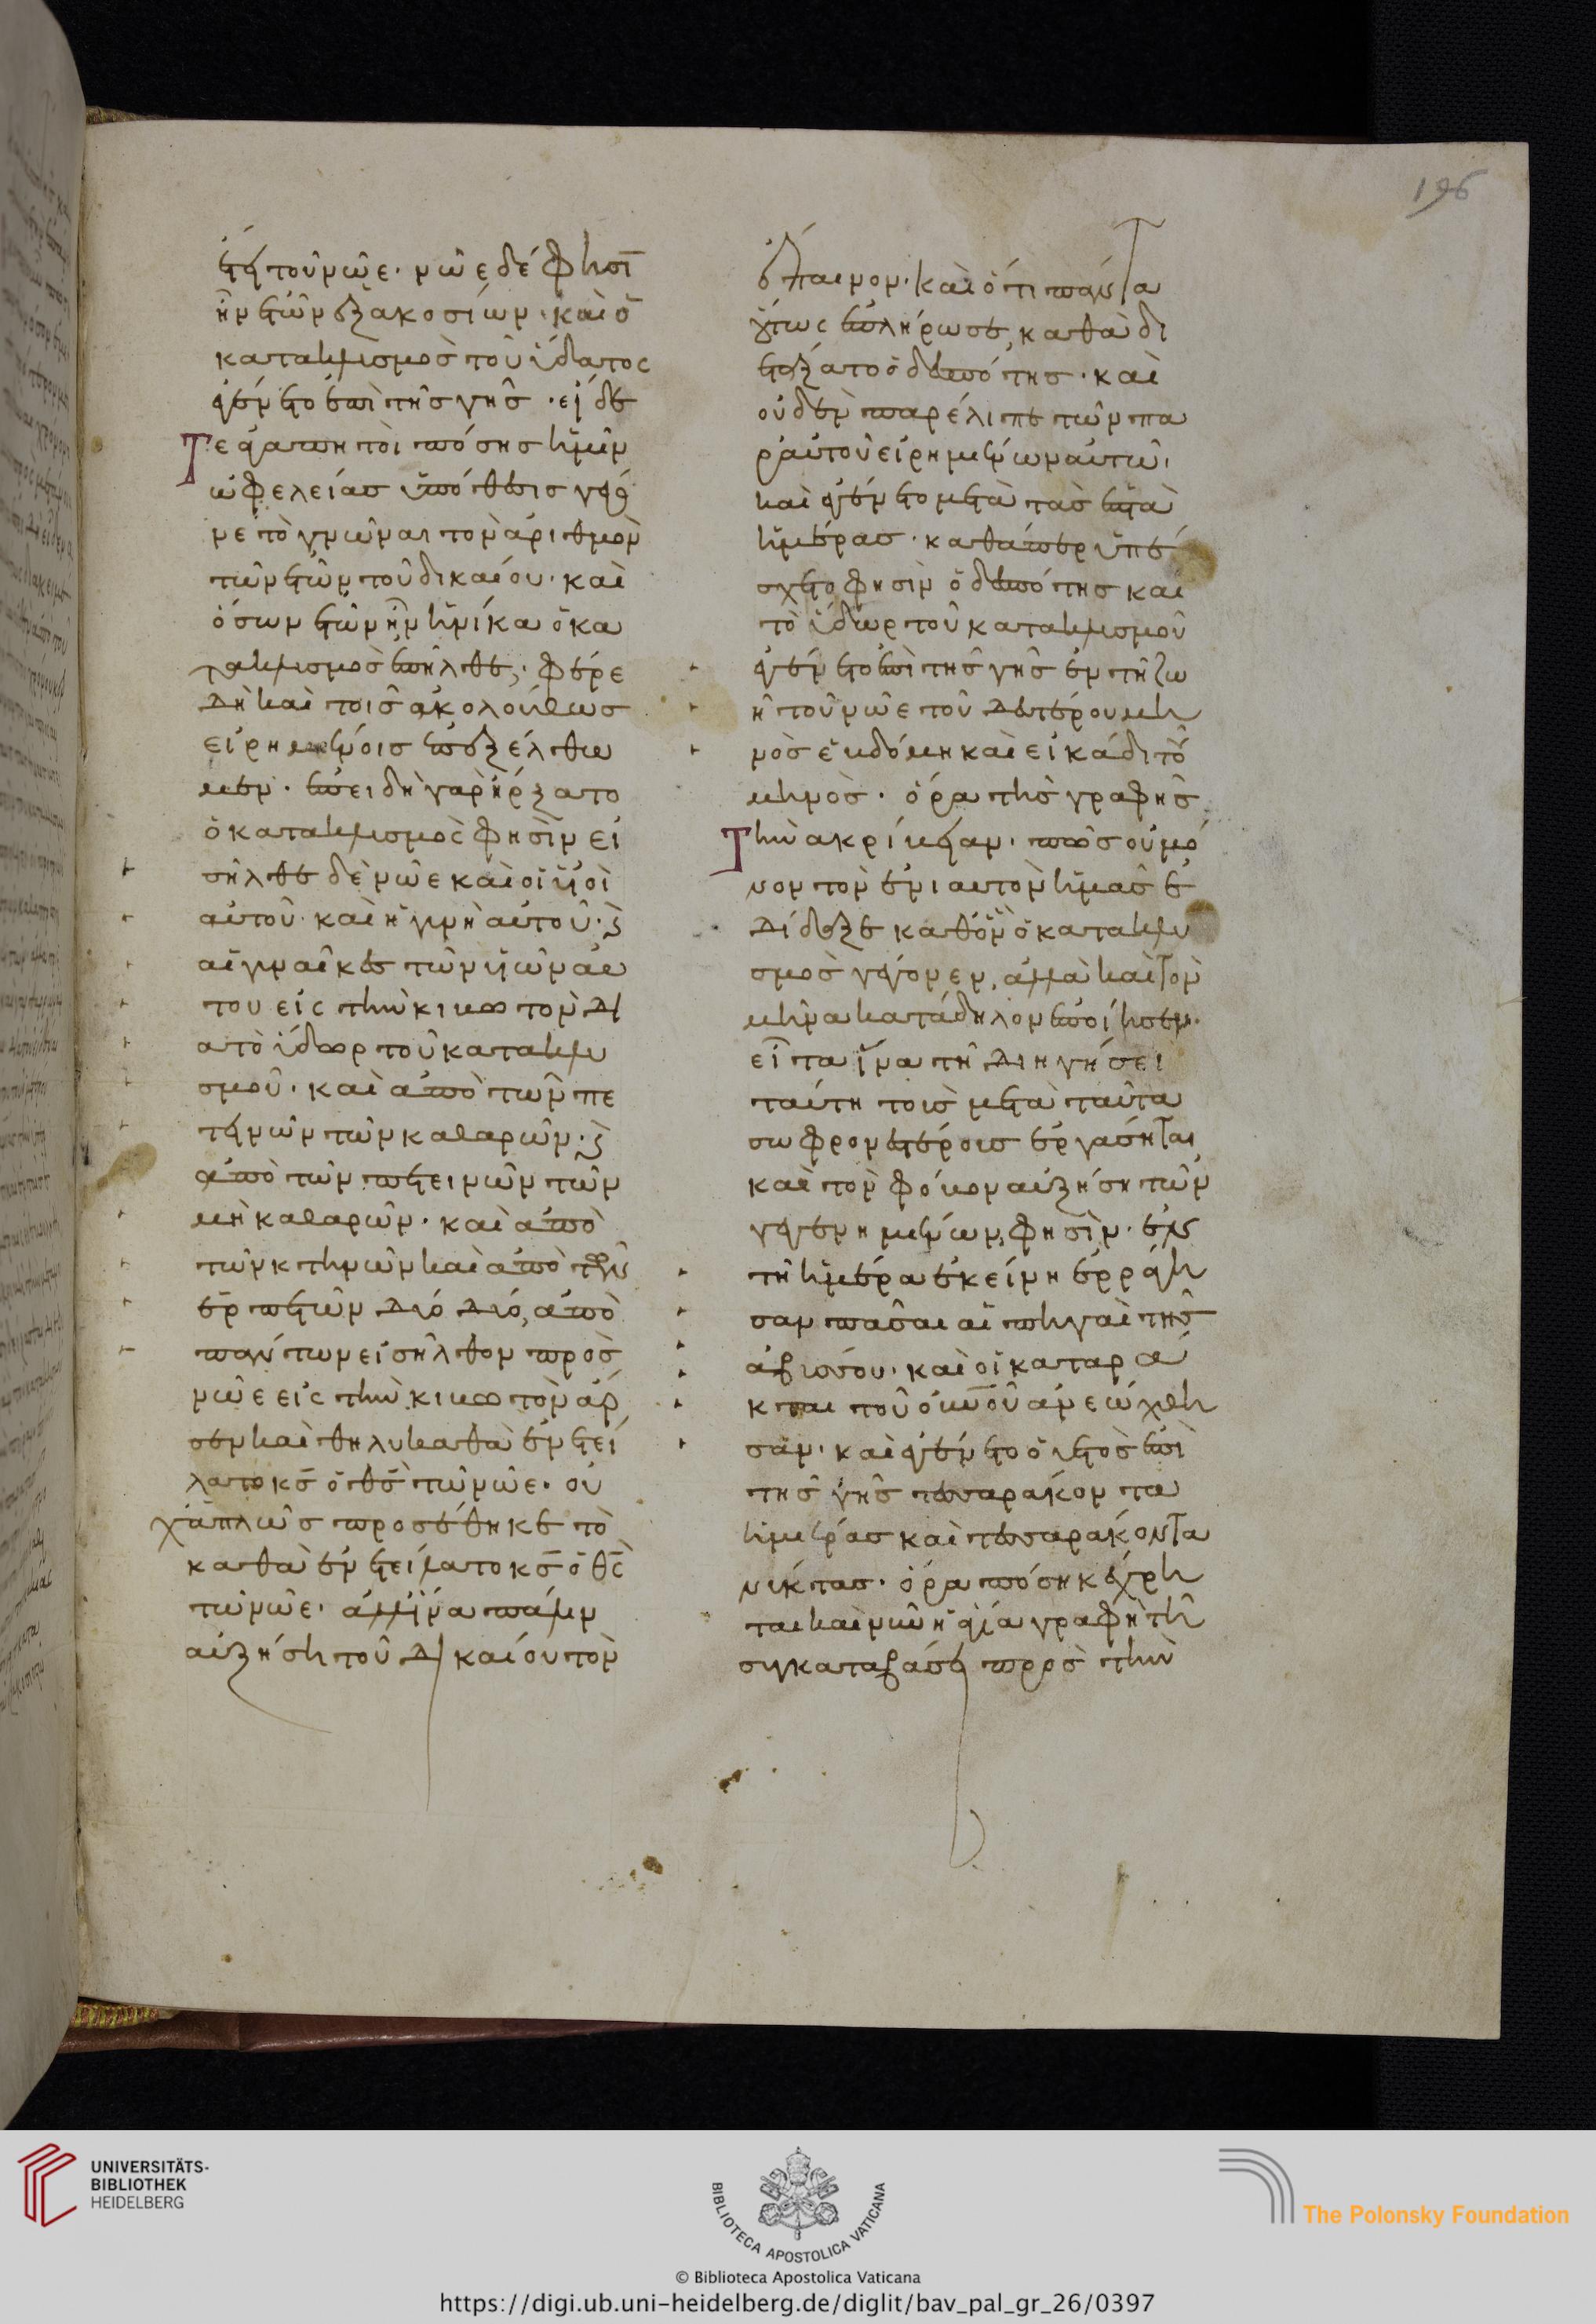 ἔτει τοῦ νῶε· νῶε δέ φησῑ
ἦν ἐτῶν ἑξακοσίων· καὶ ὁ
κατακλυσμὸς τοῦ ὕδατος
ἐγένετο ἐπὶ τῆς γῆς· εἴδε
Τε ἀγαπητοὶ πόσης ἡμῖν
ὠφελείας ὑπόθεσις γέγο
νε τὸ γνῶναι τὸν ἀριθμὸν
τῶν ἐτῶν τοῦ δικαίου· καὶ
ὅσων ἐτῶν ἦν ἡνίκα ὁ κα
τακλυσμὸς ἐπῆλθε; φέρε
δὴ καὶ τοῖς ἀκολούθως
εἰρημένοις ἐπεξέλθω
μεν· ἐπειδὴ γὰρ ἤρξατο
ὁ κατακλυσμὸς φησὶν εἰ
σῆλθε δὲ νῶε καὶ οἱ υἱοὶ
αὐτοῦ· καὶ ἡ γυνὴ αὐτοῦ· ϗ
αἱ γυναῖκες τῶν υἱῶν αὐ
του εἰς τὴν κιβωτὸν δι
ατὸ ὕδωρ τοῦ κατακλυ
σμοῦ· καὶ ἀπὸ τῶν πε
τεινῶν τῶν καθαρῶν· ϗ
ἀπὸ τῶν πετεινῶν τῶν
μὴ καθαρῶν· καὶ ἀπὸ
τῶν κτηνῶν καὶ ἀπὸ τῶν
ἑρπετῶν δύο δύο, ἀπὸ
πάντων εἰσῆλθον πρὸς
νῶε εἰς τὴν κιβωτὸν ἄρ
σεν καὶ θῆλυ καθὰ ἐνετεί
λατο κ̅ς̅ ὁ θ̅ς̅ τῶ νῶε· οὐ
χἁπλῶς προσέθηκε τὸ
καθὰ ἐνετείλατο κ̅ς̅ ὁ θ̅ς̅
τῶ νῶε· ἀλλἵνα πάλιν
αὐξήση τοῦ δικαίου τὸν
ἔπαινον· καὶ ὅτι πάντα
οὕτως ἐπλήρωσε, καθὰ δι
ετάξατο ὁ δεσπότης· καὶ
οὐδὲν παρέλιπε τῶν πα
ρ'αὐτοῦ εἰρημένων αὐτῶ·
καὶ ἐγένετο μετὰ τὰς ἑπτὰ
ἡμέρας· καθάπερ ὑπέ
σχετο φησὶν ὁ δεσπότης καὶ
τὸ ὕδωρ τοῦ κατακλυσμοῦ
ἐγένετο ἐπὶ τῆς γῆς ἐν τῆ ζω
ῆ τοῦ νῶε τοῦ δευτέρου μη
νὸς ἑβδόμη καὶ εἰκάδι τοῦ
μηνὸς· ὅρα τῆς γραφῆς
Τὴν ἀκρίβειαν· πῶς οὐ μό
νον τὸν ἐνιαυτὸν ἡμᾶς ἐ
δίδαξε καθὃν ὁ κατακλυ
σμὸς γέγονεν, ἀλλὰ καὶ τὸν
μῆνα κατάδηλον ἐποίησεν·
εἶτα ἵνα τῆ διηγήσει
ταύτη τοὺς μετὰ ταῦτα
σωφρονεστέρους ἐργάσηται
καὶ τὸν φόβον αὐξήση τῶν
γεγενημένων, φησὶν· ἐν
τῆ ἡμέρα ἐκείνη ἐρράγη
σαν πᾶσαι αἱ πηγαὶ τῆς
ἀβύσσου· καὶ οἱ καταρά
κται τοῦ ου̅νου̅ ἀνεώχθη
σαν· καὶ ἐγένετο ὁ ὑετὸς ἐπὶ
τῆς γῆς τεσσαράκοντα
ἡμέρας καὶ τεσσαράκοντα
νύκτας· ὅρα πόση κέχρη
ται καὶ νῦν ἡ ἁγία γραφὴ τῆ
συγκαταβάσει πρὸς τὴν
196
UNIVERSITÄTS-
BIBLIOTHEK
HEIDELBERG
BIBLIOTECA APOSTOLICA VATICANA
The Polonsky Foundation
© Biblioteca Apostolica Vaticana
https://digi.ub.uni-heidelberg.de/diglit/bav_pal_gr_26/0397